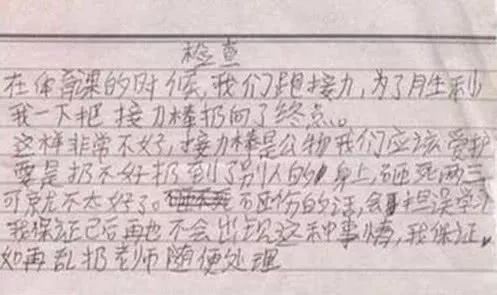 检查
在体育课的时候,我们跑接力,为了胜利
我一下把接力棒扔向了终点。
这样非常不好,接力棒是公物我们应该爱护
要是扔不好扔到了别人的身上,砸死两三
可就不太好了。砸伤的话,会担误学习
我保证已后再也不会出现这种事情,我保证
如再乱扔老师随便处理